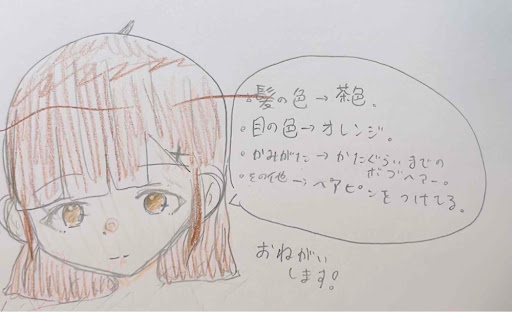 ・髪の色→茶色。
・目の色→オレンジ。
・かみがた→かたぐらいまでの
ボブヘアー。
・その他→ヘアピンをつけてる。
おねがい
します!